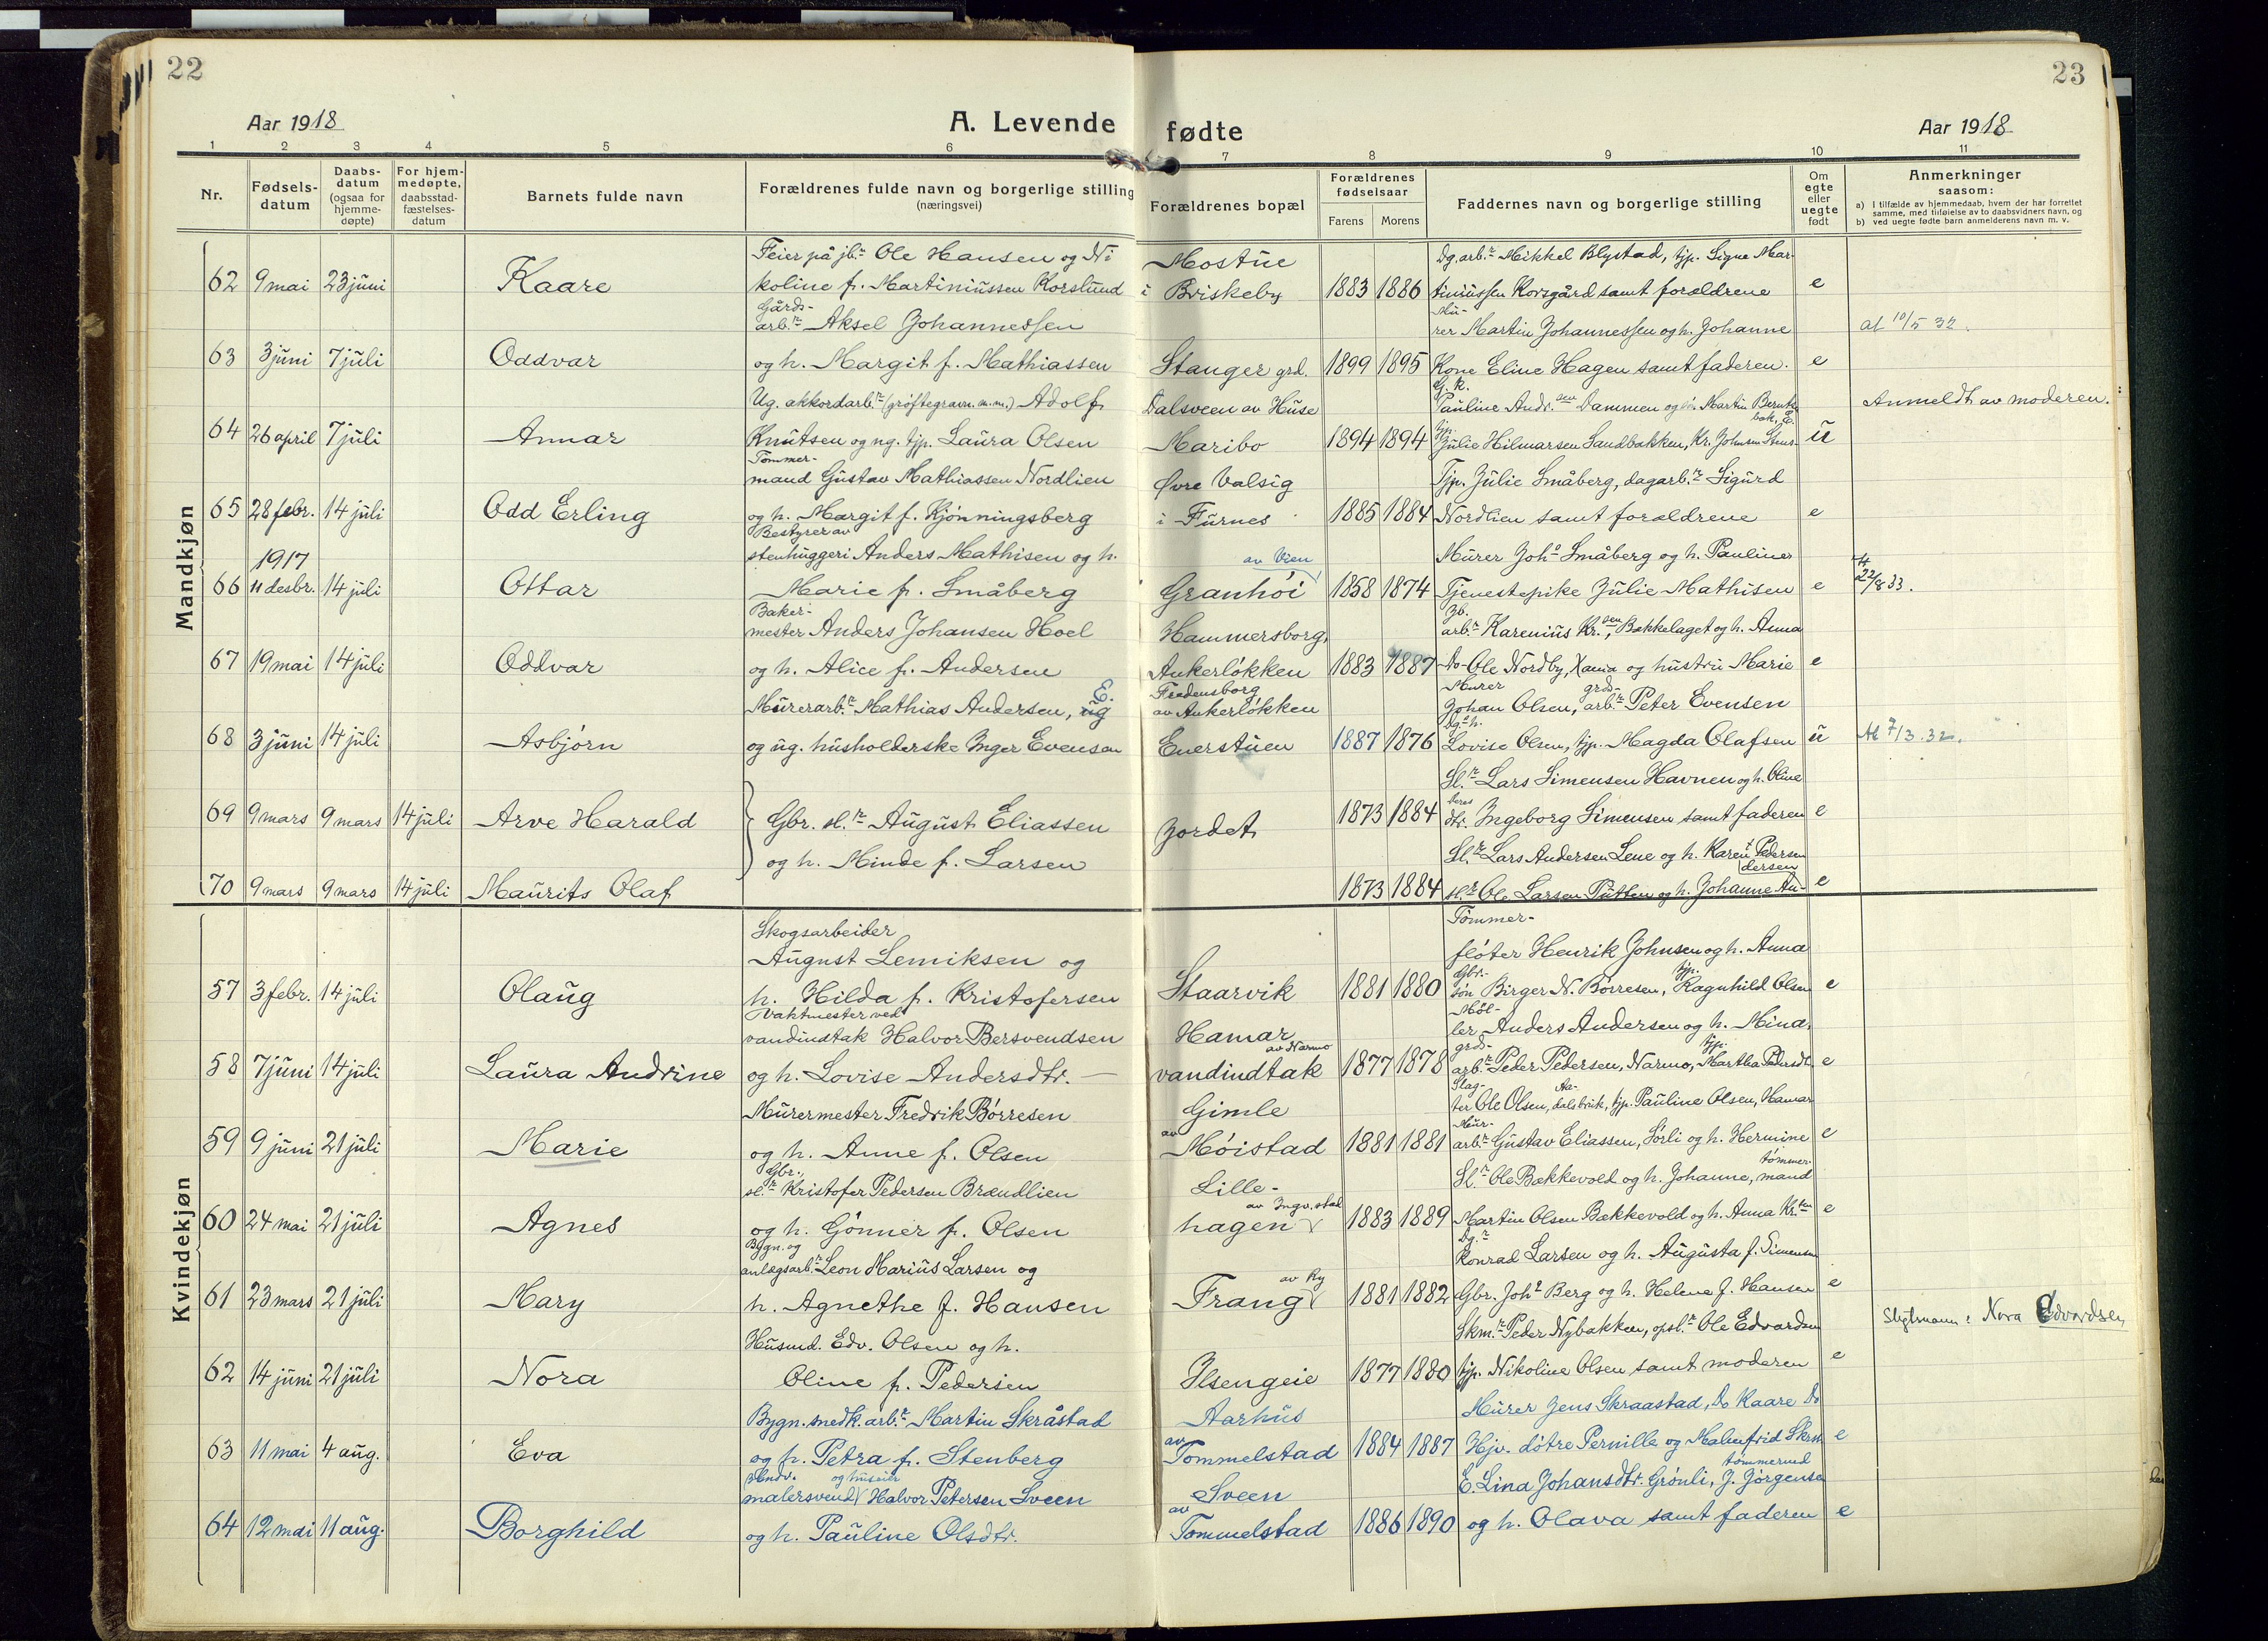 22
Aar 1918
A. Levende
1 2 3 4 5 6
Nr.
Fødsels-
datum
Daabs-
datum
(ogsaa for
hjemme-
døpte)
For hjem-
medøpte,
daabsstad-
fæstelses-
datum
Barnets fulde navn
Forældrenes fulde navn og borgerlige stilling
(næringsvei)
Mandkjøn
Feier på jb. Ole Hansen og Ni
62 9 mai 23 juni Kaare koline f. Martiniussen Korslund
Gårds-
arb.r Aksel Johannessen
63 3 juni 7 juli Oddvar og h. Margit f. Mathiassen
Ug. akkordarb.r (grøftegravn. m.m.) Adolf
64 26 april 7 juli Annar Knutsen og ug. tjp. Laura Olsen
Tømmer-
mand Gustav Mathiassen Nordlien
65 28 febr. 14 juli Odd Erling og h. Margit f. Kjønningsberg
Bestyrer av
1917 stenhuggeri Anders Mathisen og h.
66 11 desbr. 14 juli Ottar Marie f. Småberg
Baker-
mester Anders Johansen Hoel
67 19 mai 14 juli Oddvar og h. Alice f. Andersen
E.
Murerarb.r Mathias Andersen, ug
68 3 juni 14 juli Asbjørn og ug. husholderske Inger Evensen
69 9 mars 9 mars 14 juli Arve Harald Gbr. sl.r August Eliassen
og h. Minde f. Larsen
70 9 mars 9 mars 14 juli Maurits Olaf
Kvindekjøn
Skogsarbeider
August Lemiksen og
57 3 febr. 14 juli Olaug h. Hilda f. Kristofersen
Vaktmester ved
vandindtak Halvor Bersvendsen
58 7 juni 14 juli Laura Andrine og h. Lovise Andersdtr. —
Murermester Fredrik Børresen
59 9 juni 21 juli Marie og h. Anne f. Olsen
Gbr.
sl.r Kristofer Pedersen Brændlien
60 24 mai 21 juli Agnes og h. Gønner f. Olsen
Bygn. og
anlægsarb.r Leon Marius Larsen og
61 23 mars 21 juli Mary h. Agnethe f. Hansen
Husmd. Edv. Olsen og h.
62 14 juni 21 juli Nora Oline f. Pedersen
Bygn. snedk. arb.r Martin Skråstad
63 11 mai 4 aug. Eva og h. Petra f. Stenberg
og huseier
malersvend Halvor Petersen Sveen
64 12 mai 11 aug. Borghild og h. Pauline Olsdtr.
23
fødte
Aar 1918
7 8 9 10 11
Forældrenes bopæl
Forældrenes
fødselsaar
Farens Morens
Faddernes navn og borgerlige stilling
Om
egte
eller
uegte
født
Anmerkninger
saasom:
a) I tilfælde av hjemmedaab, hvem der har forrettet
samme, med tilføielse av to daabsvidners navn, og
b) ved uegte fødte barn anmelderens navn m. v.
Mostue Dg. arb.r Mikkel Blystad, tjp. Signe Mar-
i Briskeby 1883 1886 tiniussen Korsgård samt forældrene e
Mu-
rer Martin Johannessen og h. Johanne at 10/5 32.
Stanger grd. 1899 1895 Kone Eline Hagen samt faderen. e
G. k.
Dalsveen av Huse Pauline Andr.sen Dammen og Martin Bernts Anmeldt av moderen.
Maribo 1894 1894 tjp. Julie Hilmarsen Sandbakken, Kr. Johnsen u
Øvre Valsig Tjp. Julie Småberg, dagarb.r Sigurd
i Furnes 1885 1884 Nordlien samt forældrene e
av Vien Murer Joh.s Småberg og h. Pauline
Granhøi 1858 1874 Tjenestepike Julie Mathisen e 22/8 33.
Jb.
Hammersborg, arb.r Karenius Kr.sen, Bakkelaget og h. Anna
Ankerløkken 1883 1887 Do Ole Nordby, Xania og hustru Marie e
Fredensborg Murer grds-
av Ankerløkken Johan Olsen, arb.r Peter Evensen
Dg. h.
Enerstuen 1887 1876 Lovise Olsen, tjp. Magda Olafsen u At 7/3.32.
Sl.r Lars Simensen Havnen og h. Oline
Jordet 1873 1884 deres dtr. Ingeborg Simensen samt faderen e
Sl.r Lars Andersen Lene og h. Karen Pedersen
dersen
1873 1884 sl.r Ole Larsen Putten og h. Johanne An- e
Tømmer-
fløter Henrik Johnsen og h. Anna
Gbr.- tjp.
Staarvik 1881 1880 søn Birger N. Børresen, Ragnhild Olsen e
Møl-
Hamar ler Anders Andersen og h. Mina
av Narmo grds- tjp.
vandindtak 1877 1878 arb.r Peder Pedersen, Narmo, Martha Pedersdt. e
Slag- Aa-
Gimle ter Ole Olsen, dalsbruk, tjp. Pauline Olsen, Hamar
Mur-
av Møistad 1881 1881 arb.r Gustav Eliassen, Sørli og h. Hermine e
tømmer-
Lille- Sl.r Ole Bækkevold og h. Johanne, mand
av Ingv.stad
hagen 1883 1889 Martin Olsen Bækkevold og h. Anna Kr.sen e
Dg.r
Konrad Larsen og h. Augusta f. Simensen
av Ry
Frang 1881 1882 Gbr. Joh.s Berg og h. Helene f. Hansen e
Skm.r Peder Nybakken, opsl.r Ole Edvardsen Slegtsnavn: Nora Edvardsen
Ilsengeie 1877 1880 tjp. Nikoline Olsen samt moderen e
Aarhus Murer Jens Skraastad, Do Kaare Do
av Tommelstad 1884 1887 Hjv. døtre Pernille og Malmfrid Skrm e
tømmermd
Sveen E. Lina Johansdtr. Grønli, J. Jørgensen
av Tommelstad 1886 1890 og h. Olava samt faderen e